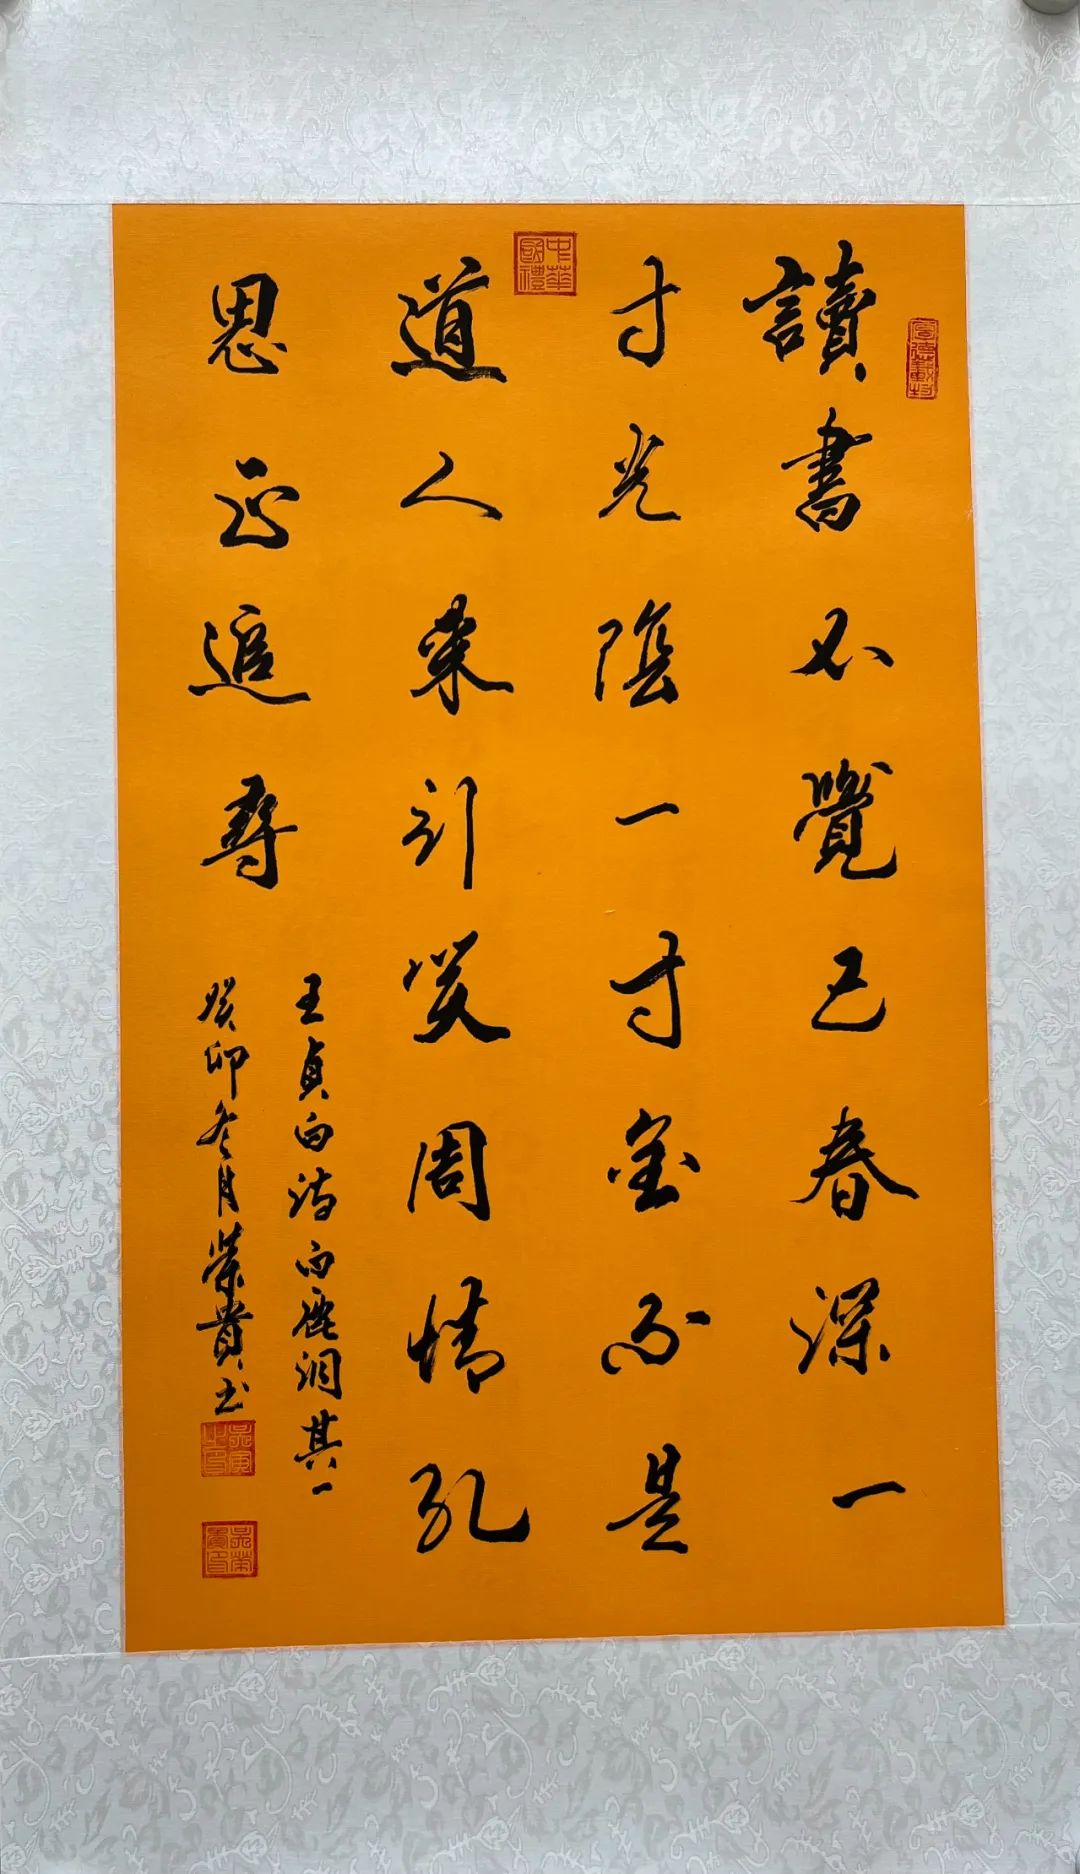 讀書不覺已春深一
寸光陰一寸金不是
道人來引笑周情孔
思正追尋
王貞白诗白鹿洞其一
癸卯冬月榮貴书
中華國禮